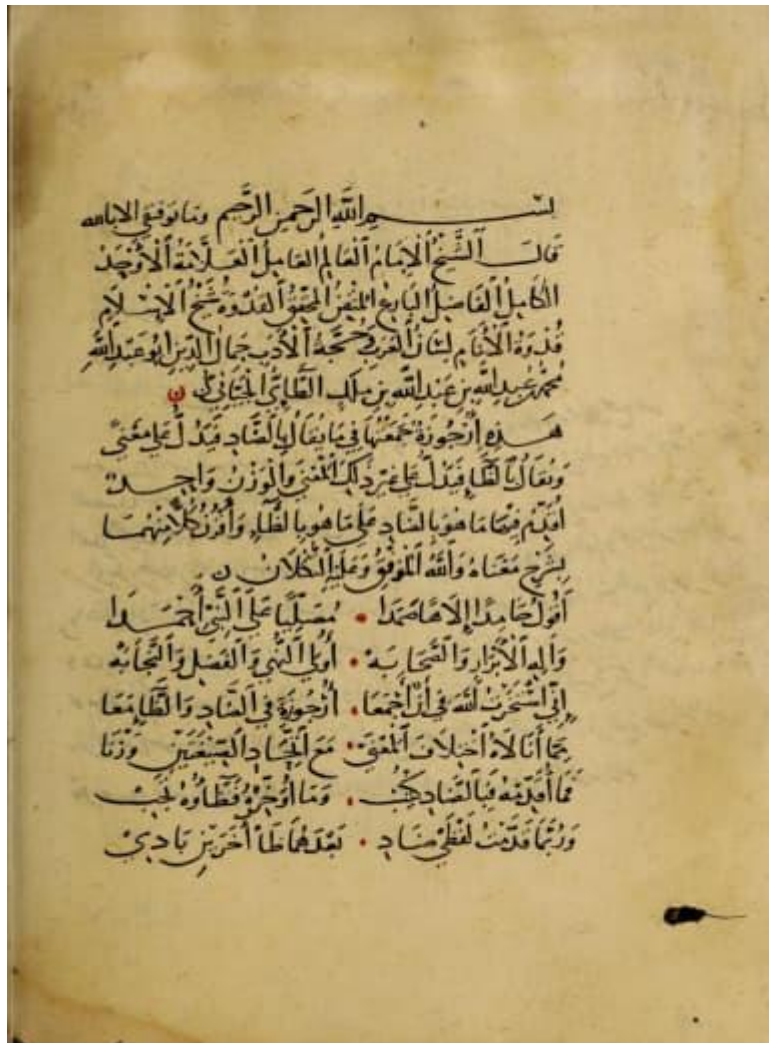 بسم الله الرحمن الرحيم وما توفيقي الا بالله
قال الشيخ الامام العالم العامل العلامة الأوحد
الكامل الفاضل البارع المحقق القدوة شيخ الإسلام
قدوة الأنام لسان العرب حجة الأدب جمال الدين ابو عبد الله
محمد بن عبد الله بن عبد الله بن ملك الطائي الجياني
هذه أرجوزة جمعتها في ما يقال بالضاد فيدل على معنى
ويقال بالظاء فيدل على غير ذلك المعنى والوزن واحد
أقدم فيها ما هو بالضاد على ما هو بالظاء وأقرن كلا منهما
بشرح معناه والله الموفق وعليه التكلان
أقول حامدا إلاها صمدا • مصليا على النبي أحمدا
وآله الأبرار والصحابه • أولي النهى والفضل والنجابه
إني استخرت الله في أن أجمعا • أرجوزة في الضاد والظا معا
مما أتى له اختلاف المعنى • مع اتحاد الصنفين وزنا
فما أقدمه فبالضاد كتب • وما أؤخره فظاؤه تجب
وربما قدمت لفظي ضاد • بعدهما ظاآخرين بادي